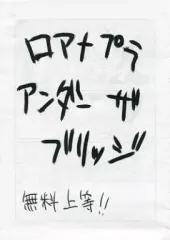 ロアナプラ
アンダー ザ
ブリッジ
無料上等!!